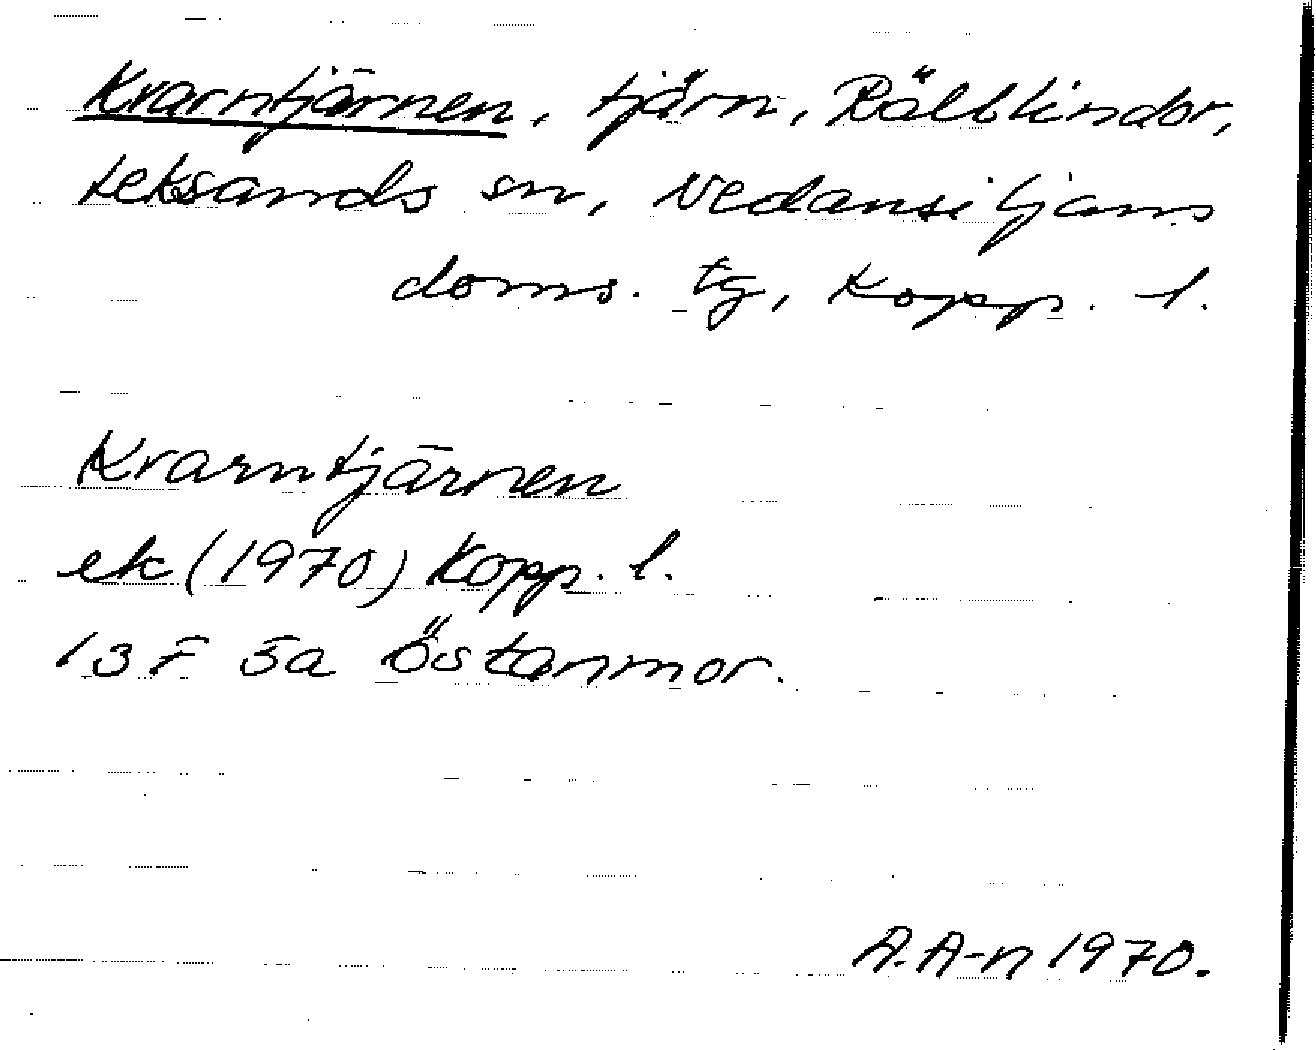 Kvarntjärnen, tjärn, Rälltindor,
Leksands sn, Nedansiljans
doms. tg, Kopp. l.
Kvarntjärnen
ek (1970) Kopp. l.
13 F 5a Östanmor.
A.A-n 1970.